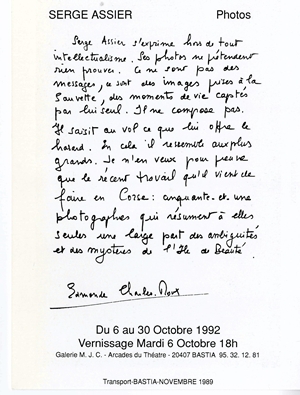 SERGE ASSIER Photos
Serge Assier s'exprime hors de tout
intellectualisme. Ses photos ne prétendent
rien prouver. Ce ne sont pas des
messages, ce sont des images prises à la
sauvette, des moments de vie captés
par lui seul. Il ne compose pas.
Il saisit au vol ce que lui offre le
hasard. En cela il ressemble aux plus
grands. Je n'en veux pour preuve
que le récent travail qu'il vient de
faire en Corse : cinquante et une
photographies qui résument à elles
seules une large part des ambiguités
et des mystères de l'Ile de Beauté.
Edmonde Charles-Roux
Du 6 au 30 Octobre 1992
Vernissage Mardi 6 Octobre 18h
Galerie M. J. C. - Arcades du Théatre - 20407 BASTIA 95. 32. 12. 81
Transport-BASTIA-NOVEMBRE 1989